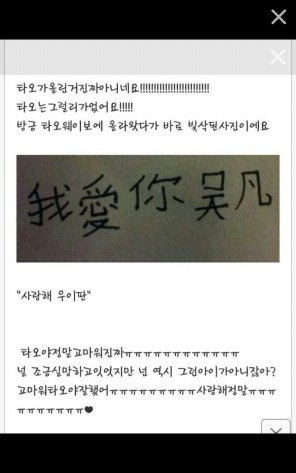 타오가올린거진짜아니네요!!!!!!!!!!!!!!!!!!!!!!!!!
타오는그럴리가없어요!!!!!
방금 타오웨이보에 올라왔다가 바로 빛삭된사진이에요
我愛你吴凡
"사랑해 우이판"
타오야정말고마워진짜ㅠㅠㅠㅠㅠㅠㅠㅠㅠㅠㅠㅠ
널 조금실망하고있엇지만 넌 역시 그런아이가아니잖아?
고마워타오야잘했어ㅠㅠㅠㅠㅠㅠㅠㅠㅠ사랑해정말ㅠㅠㅠ
ㅠㅠㅠㅠㅠㅠㅠ♥